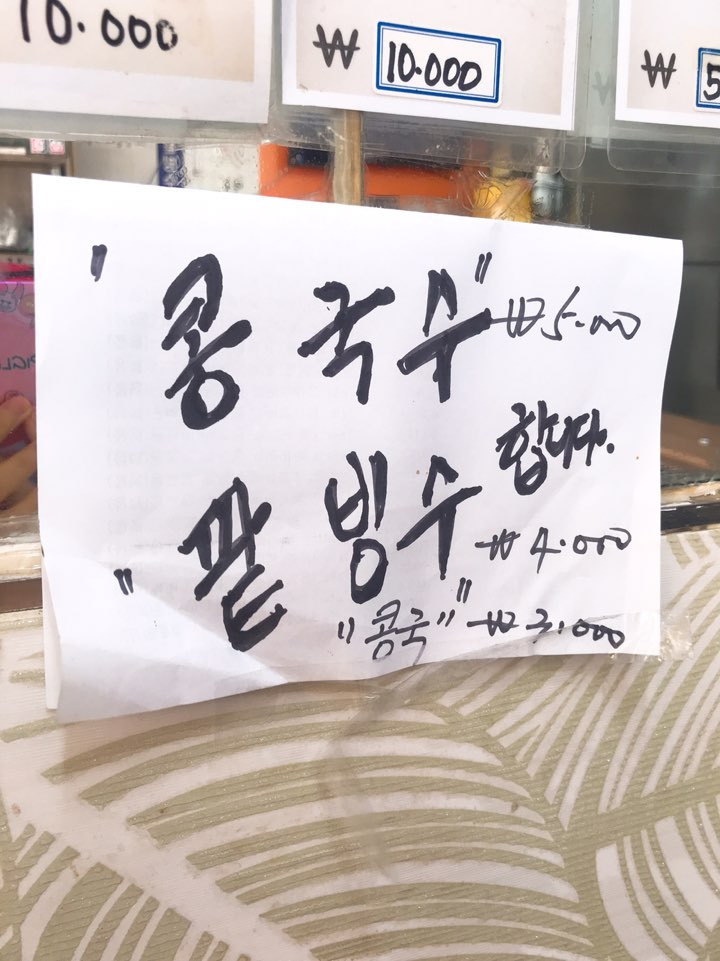 10.000
₩ 10.000
₩ 5
" 콩 국 수 " ₩ 5.000
합니다.
" 팥 빙 수 " ₩ 4.000
" 콩국 " ₩ 3.000